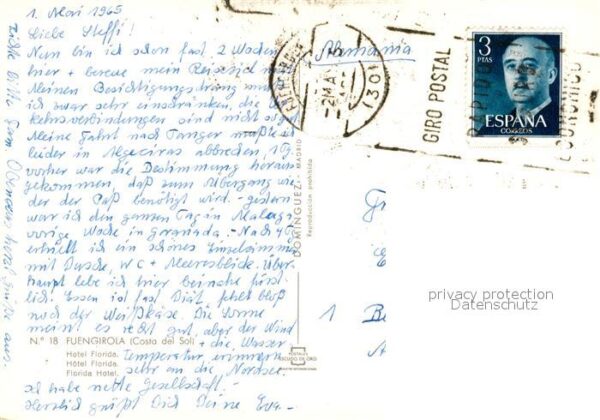 1. Mai 1965
Liebe Steffi!
Nun bin ich schon fast 2 Wochen
hier + bereue mein Reiseziel
Meinen Besichtigungsdrang muß
ich zwar sehr einschränken, die
kehrsverbindungen sind nicht
Meine Fahrt nach Tanger mußte
leider in Algeciras abbrechen,
vorher war die Bestimmung heraus
gekommen, daß zum Übergang wie
der der Paß benötigt wird. - gestern
war ich den ganzen Tag in Malaga
vorige Woche in Granada. - Nach
erhielt ich ein schönes Einzelzimmer
mit Dusche, WC + Meeresblick. Über
haupt lebe ich hier beinahe fürst
lich. Essen ist fast Diät, fehlt bloß
noch der Weißkäse. Die Sonne
meint es recht gut, aber der Wind
+ die Wasser
Temperatur, erinnern
sehr an die Nordsee.
Ich habe nette Gesellschaft. -
Herzlich grüßt Dich Deine Eva -
Bitte
aus.
N.º 18 FUENGIROLA (Costa del Sol)
Hotel Florida.
Hôtel Florida.
Florida Hotel.
POSTALES
ESCUDO DE ORO
DOMINGUEZ - MADRID
Reproducción prohibida
Alemania
GIRO POSTAL
RAPIDO
ECONOMICO
3
PTAS
ESPAÑA
CORREOS
1
privacy protection
Datenschutz